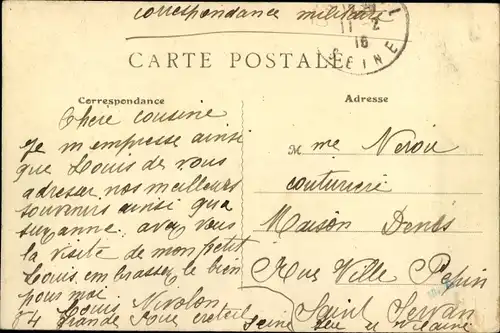 correspondance militaire
11-2
16
SEINE
CARTE POSTALE
Correspondance
Chère cousine
je m empresse ainsi
que Louis de vous
adresser nos meilleurs
souvenirs ainsi qu a
suzanne avez vous
la visite de mon petit
Louis embrassez le bien
pour moi
Louis Nivolon
54 grande Rue creteil Seine
Adresse
Mme Neroir
couturiere
Maison Denés
Rue Ville Pepin
Saint Servan